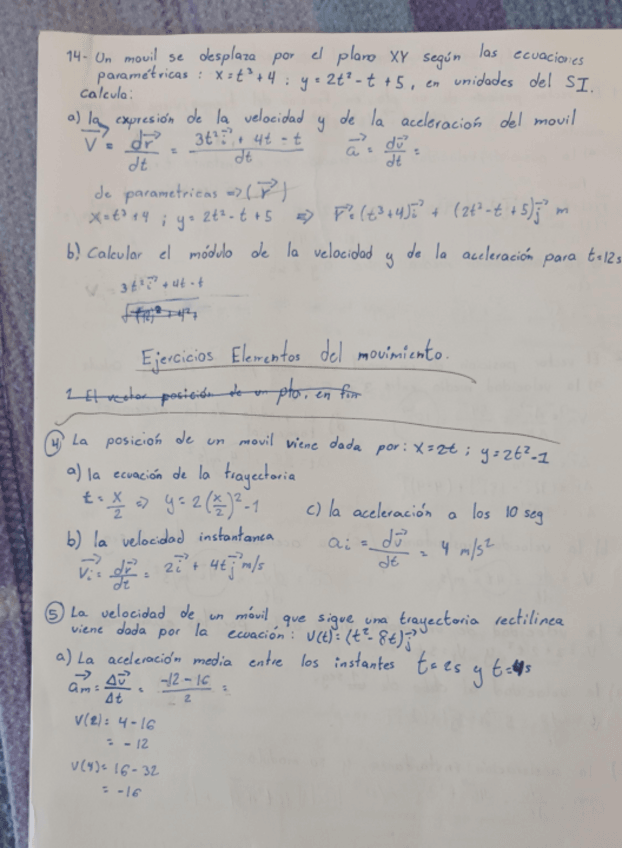 14- Un movil se desplaza por el plano XY según las ecuaciones
paramétricas : x = t³ + 4 ; y = 2t² - t + 5, en unidades del SI.
Calcula:
a) la expresión de la velocidad y de la aceleración del movil
V⃗ = dr⃗/dt = 3t²i⃗ + 4t - t/dt a⃗ = dv⃗/dt =
de parametricas => (r⃗)
x = t³ + 4 ; y = 2t² - t + 5 => r⃗ = (t³+4)i⃗ + (2t² - t + 5)j⃗ m
b) Calcular el módulo de la velocidad y de la aceleración para t=12s
V = 3t²i⃗ + 4t - t
Ejercicios Elementos del movimiento.
1 El vector posición de un pto, en fin
④ La posición de un movil viene dada por: x = 2t ; y = 2t² - 1
a) la ecuación de la trayectoria
t = x/2 => y = 2(x/2)² - 1
c) la aceleración a los 10 seg
b) la velocidad instantanea
ai = dv⃗/dt = 4 m/s²
V⃗i = dr⃗/dt = 2i⃗ + 4tj⃗ m/s
⑤ La velocidad de un móvil que sigue una trayectoria rectilinea
viene dada por la ecuación : v(t) = (t² - 8t)j⃗
a) La aceleración media entre los instantes t=2s y t=4s
a⃗m = Δv⃗/Δt = -12 - 16/2 =
V(2) = 4 - 16
= -12
V(4) = 16 - 32
= -16